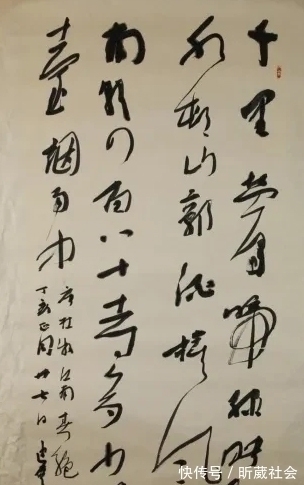 千里莺啼绿映
水村山郭酒旗风
南朝四百八十寺多少
臺烟雨中
唐杜牧江南春绝
丁亥正月廿七日
快传号 / 昕葳社会